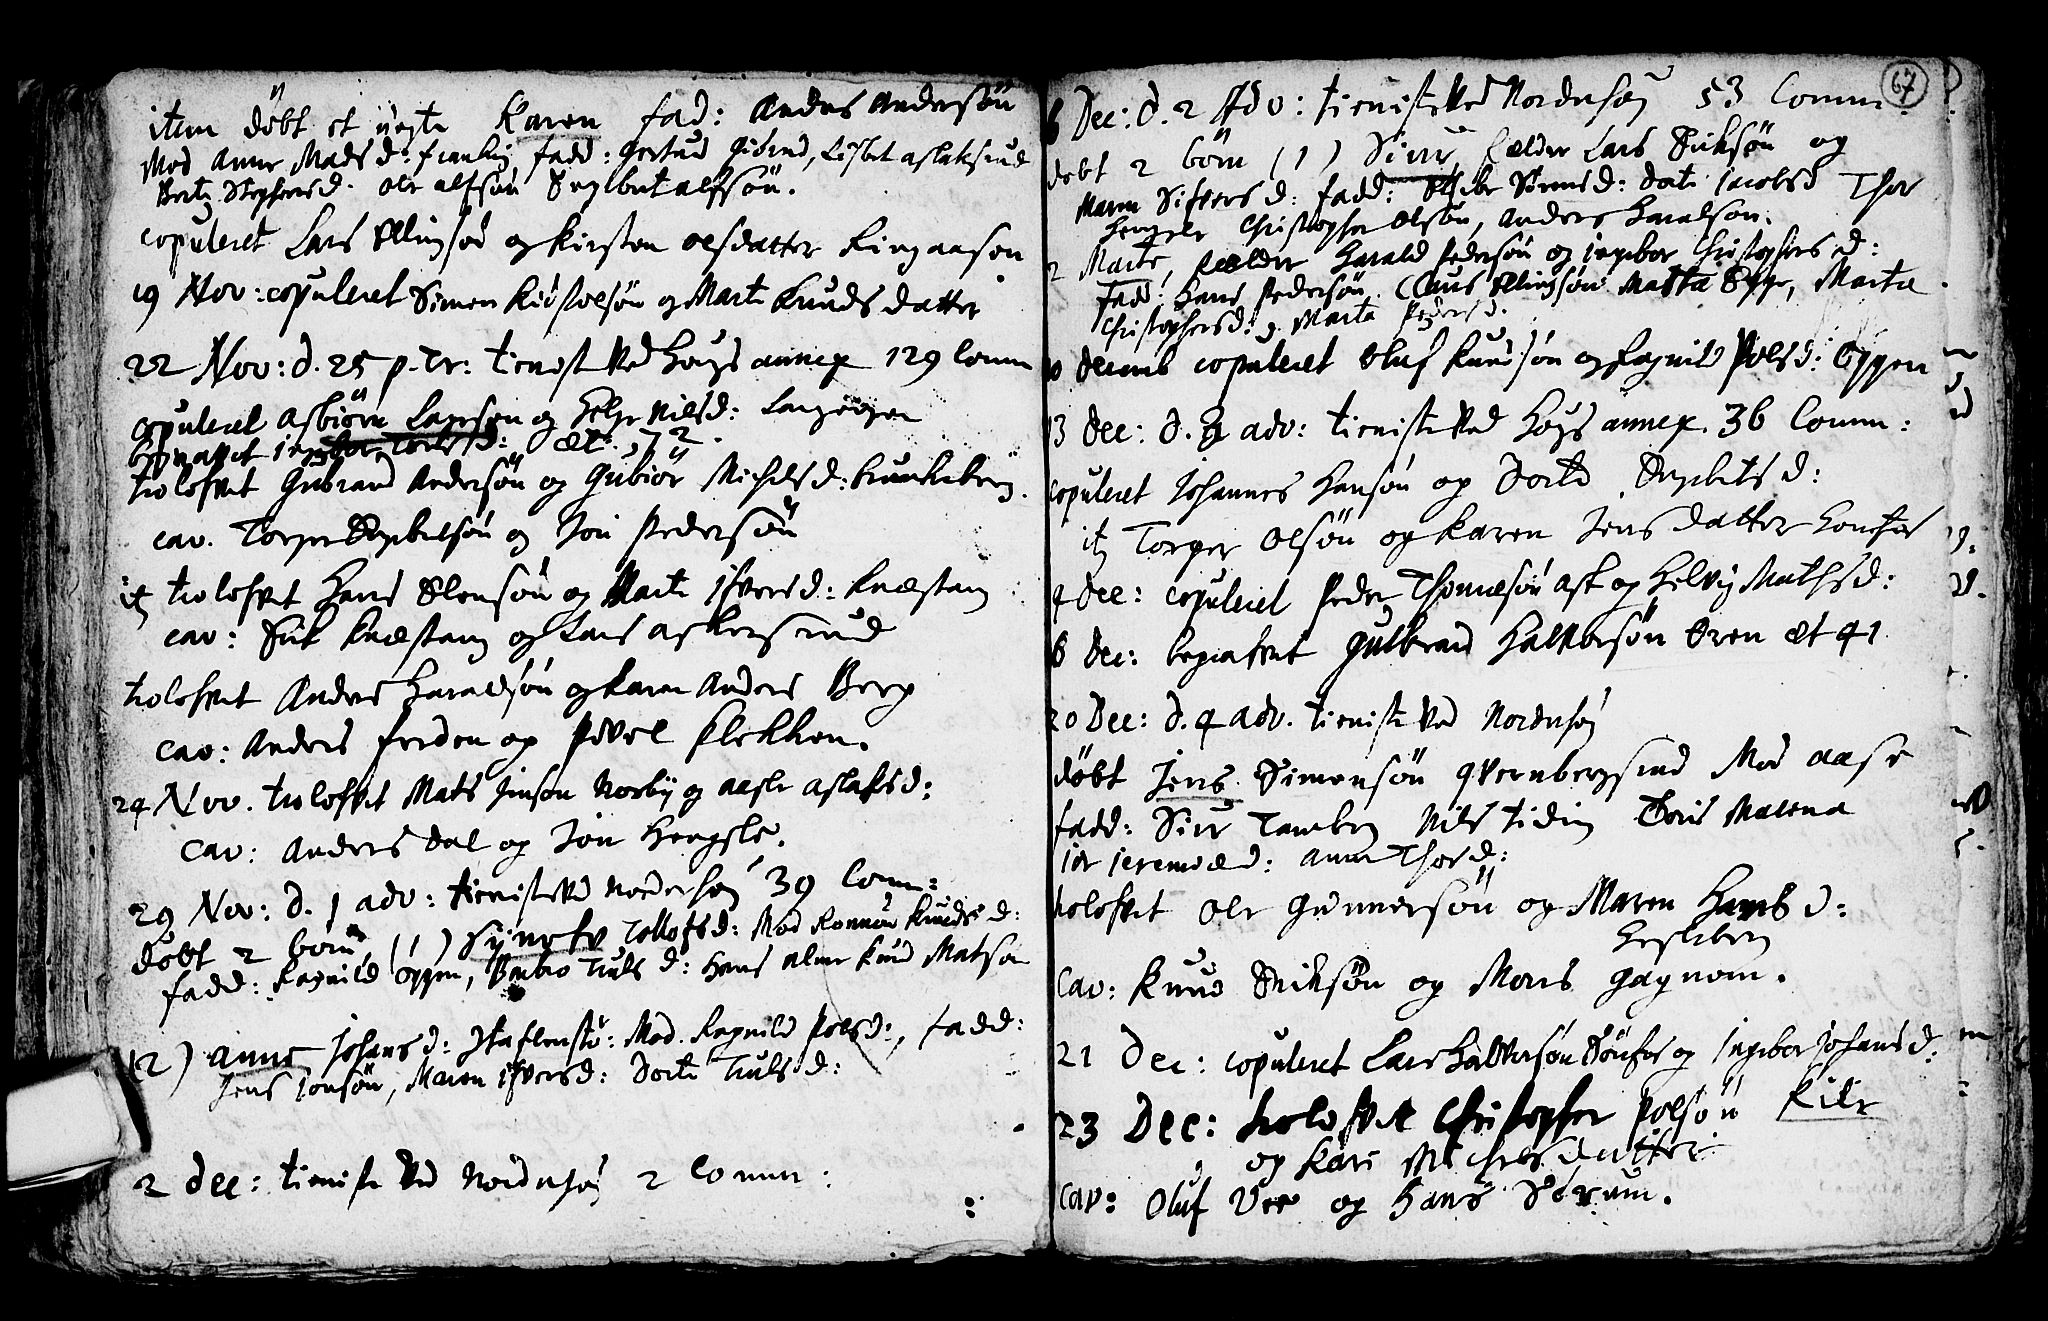 item döbt et uegte Karen fad: Anders Andersön
Mod Anne Mads d: fadd: Gertrud Gibrud, Lisbet aslaksrud
Berte Stephens d. ole alfsön Engelbret alfsön.
copuleret Lars Ellingsön og Kirsten olsdatter Ringaasen
19 Nov: copuleret Simen Kiöstolsön og Marte Knuds datter
22 Nov: d. 25 p. Tr: tienist Ved Hougs annex 129 Comm
copuleret asbiörn Larsson og Helge Nilsd:
begravet ingebor Torls d: æt: 72.
trolofvet Gubrand Andersön og Gubiör Michels d:
cav. Torger Engebretsön og Jon Pedersön
it trolofvet Hans Stensön og Marte ifvers d: Knæstang
cav: Erik Knæstang og Lars askersrud
trolofvet Anders Haraldsön og Karen Anders Berg
cav: Anders Frøden og Povel Klekken.
24 Nov. trolofvet Mads Jenson Norby og aasle aslaksd:
cav: Anders Dal og Jon Hengsle.
29 Nov: d. 1 adv: tieniste Ved Norderhoy 39 Comm:
döbt 2 börn (1) Synnöfv Tollofsd: Mod Ronnou Knuds d:
fadd: Ragnild Oppen, Barbro Truls d: Hans alme Knud Matson
(2) Anne Johans d: Mod. Ragnild Polsd:, fadd:
Jens Jonsön, Maren ifversd: Dorte Trulsd:
2 Dec: tieniste Ved Norderhoy 2 Comm:
67
6 Dec: d. 2 Adv: tieniste Ved Norderhoy 53 Comm
döbt 2 börn (1) Siri forælder Lars Eriksön og
Maren Sifvers d: fadd: Dorte Jacobsd Thor
Hengsle Christopher olsön, Anders Haralson.
2 Marte, forælder Harald Pedersön og ingebor Christophers d:
Fadd: Hans Pedersön Claus Ellingsön Marta Marta
Christophersd: Marta Peders d.
10 Decemb copuleret Oluf Knudsön og Ragnild Polsd: Oppen
13 Dec: d. 3 adv: tieniste Ved Hougs annex. 36 Comm:
copuleret Johannes Hansön og Dorte Engebrets d:
it Torger Olsön og Karen Jens datter Honefos
copuleret Peder Thomesön Ask og Helvig Mathsd:
Dec: begrafvet Gulbrand Halvorsön Oren æt 41
20 Dec: d. 4 adv. tieniste Ved Norderhoy
döbt Jens Simensön qvernbergsrud Mod aase
fadd: Siri Tanberg Nils tidin Toris Malena
anne Thor d:
trolofvet Ole Gunnersön og Maren Hans d:
Hesleberg
Cav: Knud Eriksön og Mons gagnom.
21 Dec: copuleret Lars Halvorsön Hönfos og Ingebor Johans d:
23 Dec: trolofvet Christopher Polsön Kile
og Kari Michelsdatter
cav: Oluf Vee og Hans Sörum.